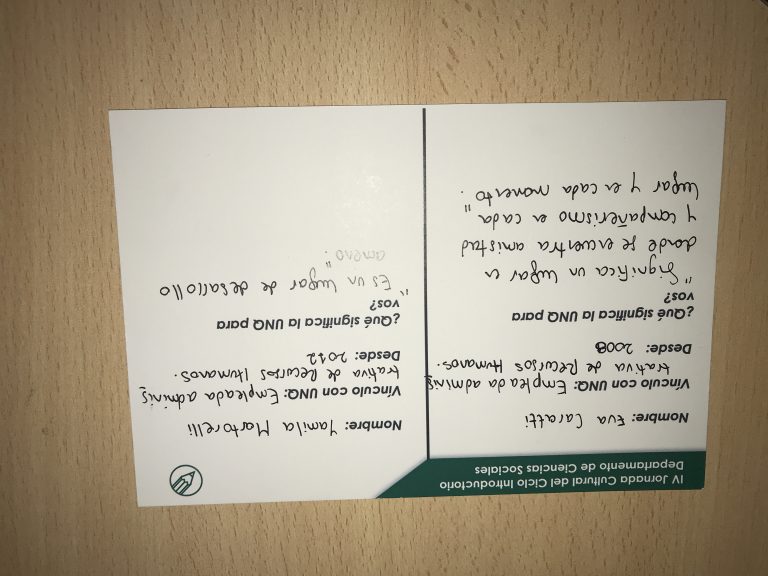 IV Jornada Cultural del Ciclo Introductorio
Departamento de Ciencias Sociales
Nombre: Eva Caratti
Vínculo con UNQ: Empleada adminis
trativa de Recursos Humanos.
Desde: 2008
¿Qué significa la UNQ para
vos?
"Significa un lugar en
donde se encuentra amistad
y compañerismo en cada
lugar y en cada momento."
Nombre: Yamila Martorelli
Vínculo con UNQ: Empleada adminis
trativa de Recursos Humanos.
Desde: 2012
¿Qué significa la UNQ para
vos?
"Es un lugar de desarrollo
ameno."